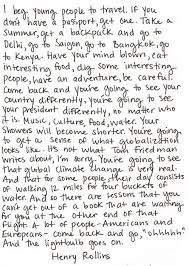 I beg young people to travel. If you
don't have a passport, get one. Take a
summer, get a backpack and go to
Delhi, go to Saigon, go to Bangkok, go
to Kenya. Have your mind blown, eat
interesting food, dig some interesting
people, have an adventure, be careful.
Come back and you're going to see your
country differently, you're going to see
your president differently, no matter who
it is. Music, culture, food, water. Your
showers will become shorter. You're going
to get a sense of what globalization
looks like. It's not what Tom Friedman
writes about, I'm sorry. You're going to see
that global climate change is very real.
And that for some people, their day consists
of walking 12 miles for four buckets of
water. And so there are lessons that you
can't get out of a book that are waiting
for you at the other end of that
flight. A lot of people-Americans and
Europeans- come back and go, "ohhhhh"
And the lightbulb goes on.
Henry Rollins